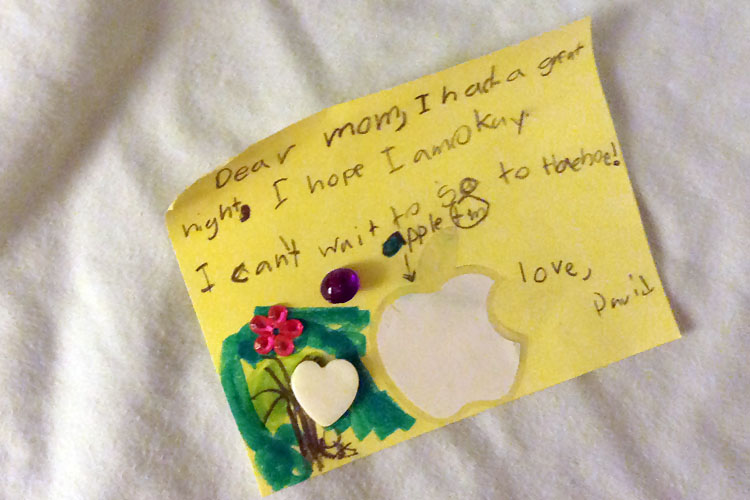 Dear mom, I had a great
night, I hope I am Okay
I can't wait to go to Haehoe!
apple tm
love,
David